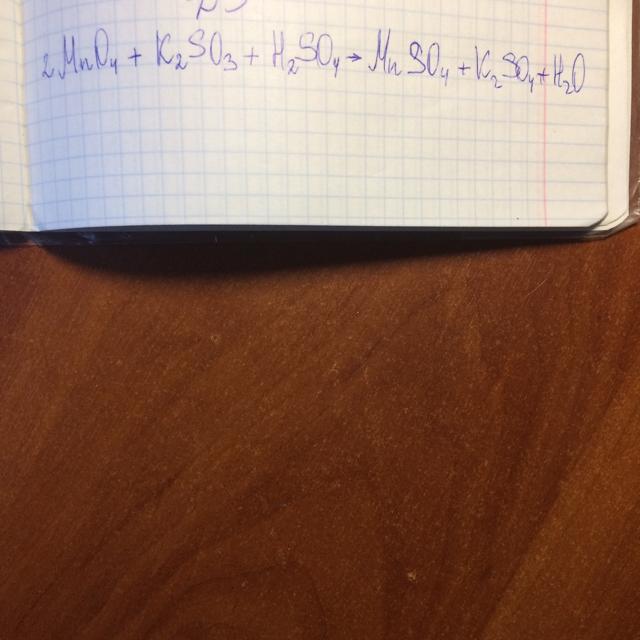 2 MnO₄ + K₂SO₃ + H₂SO₄ → MnSO₄ + K₂SO₄ + H₂O